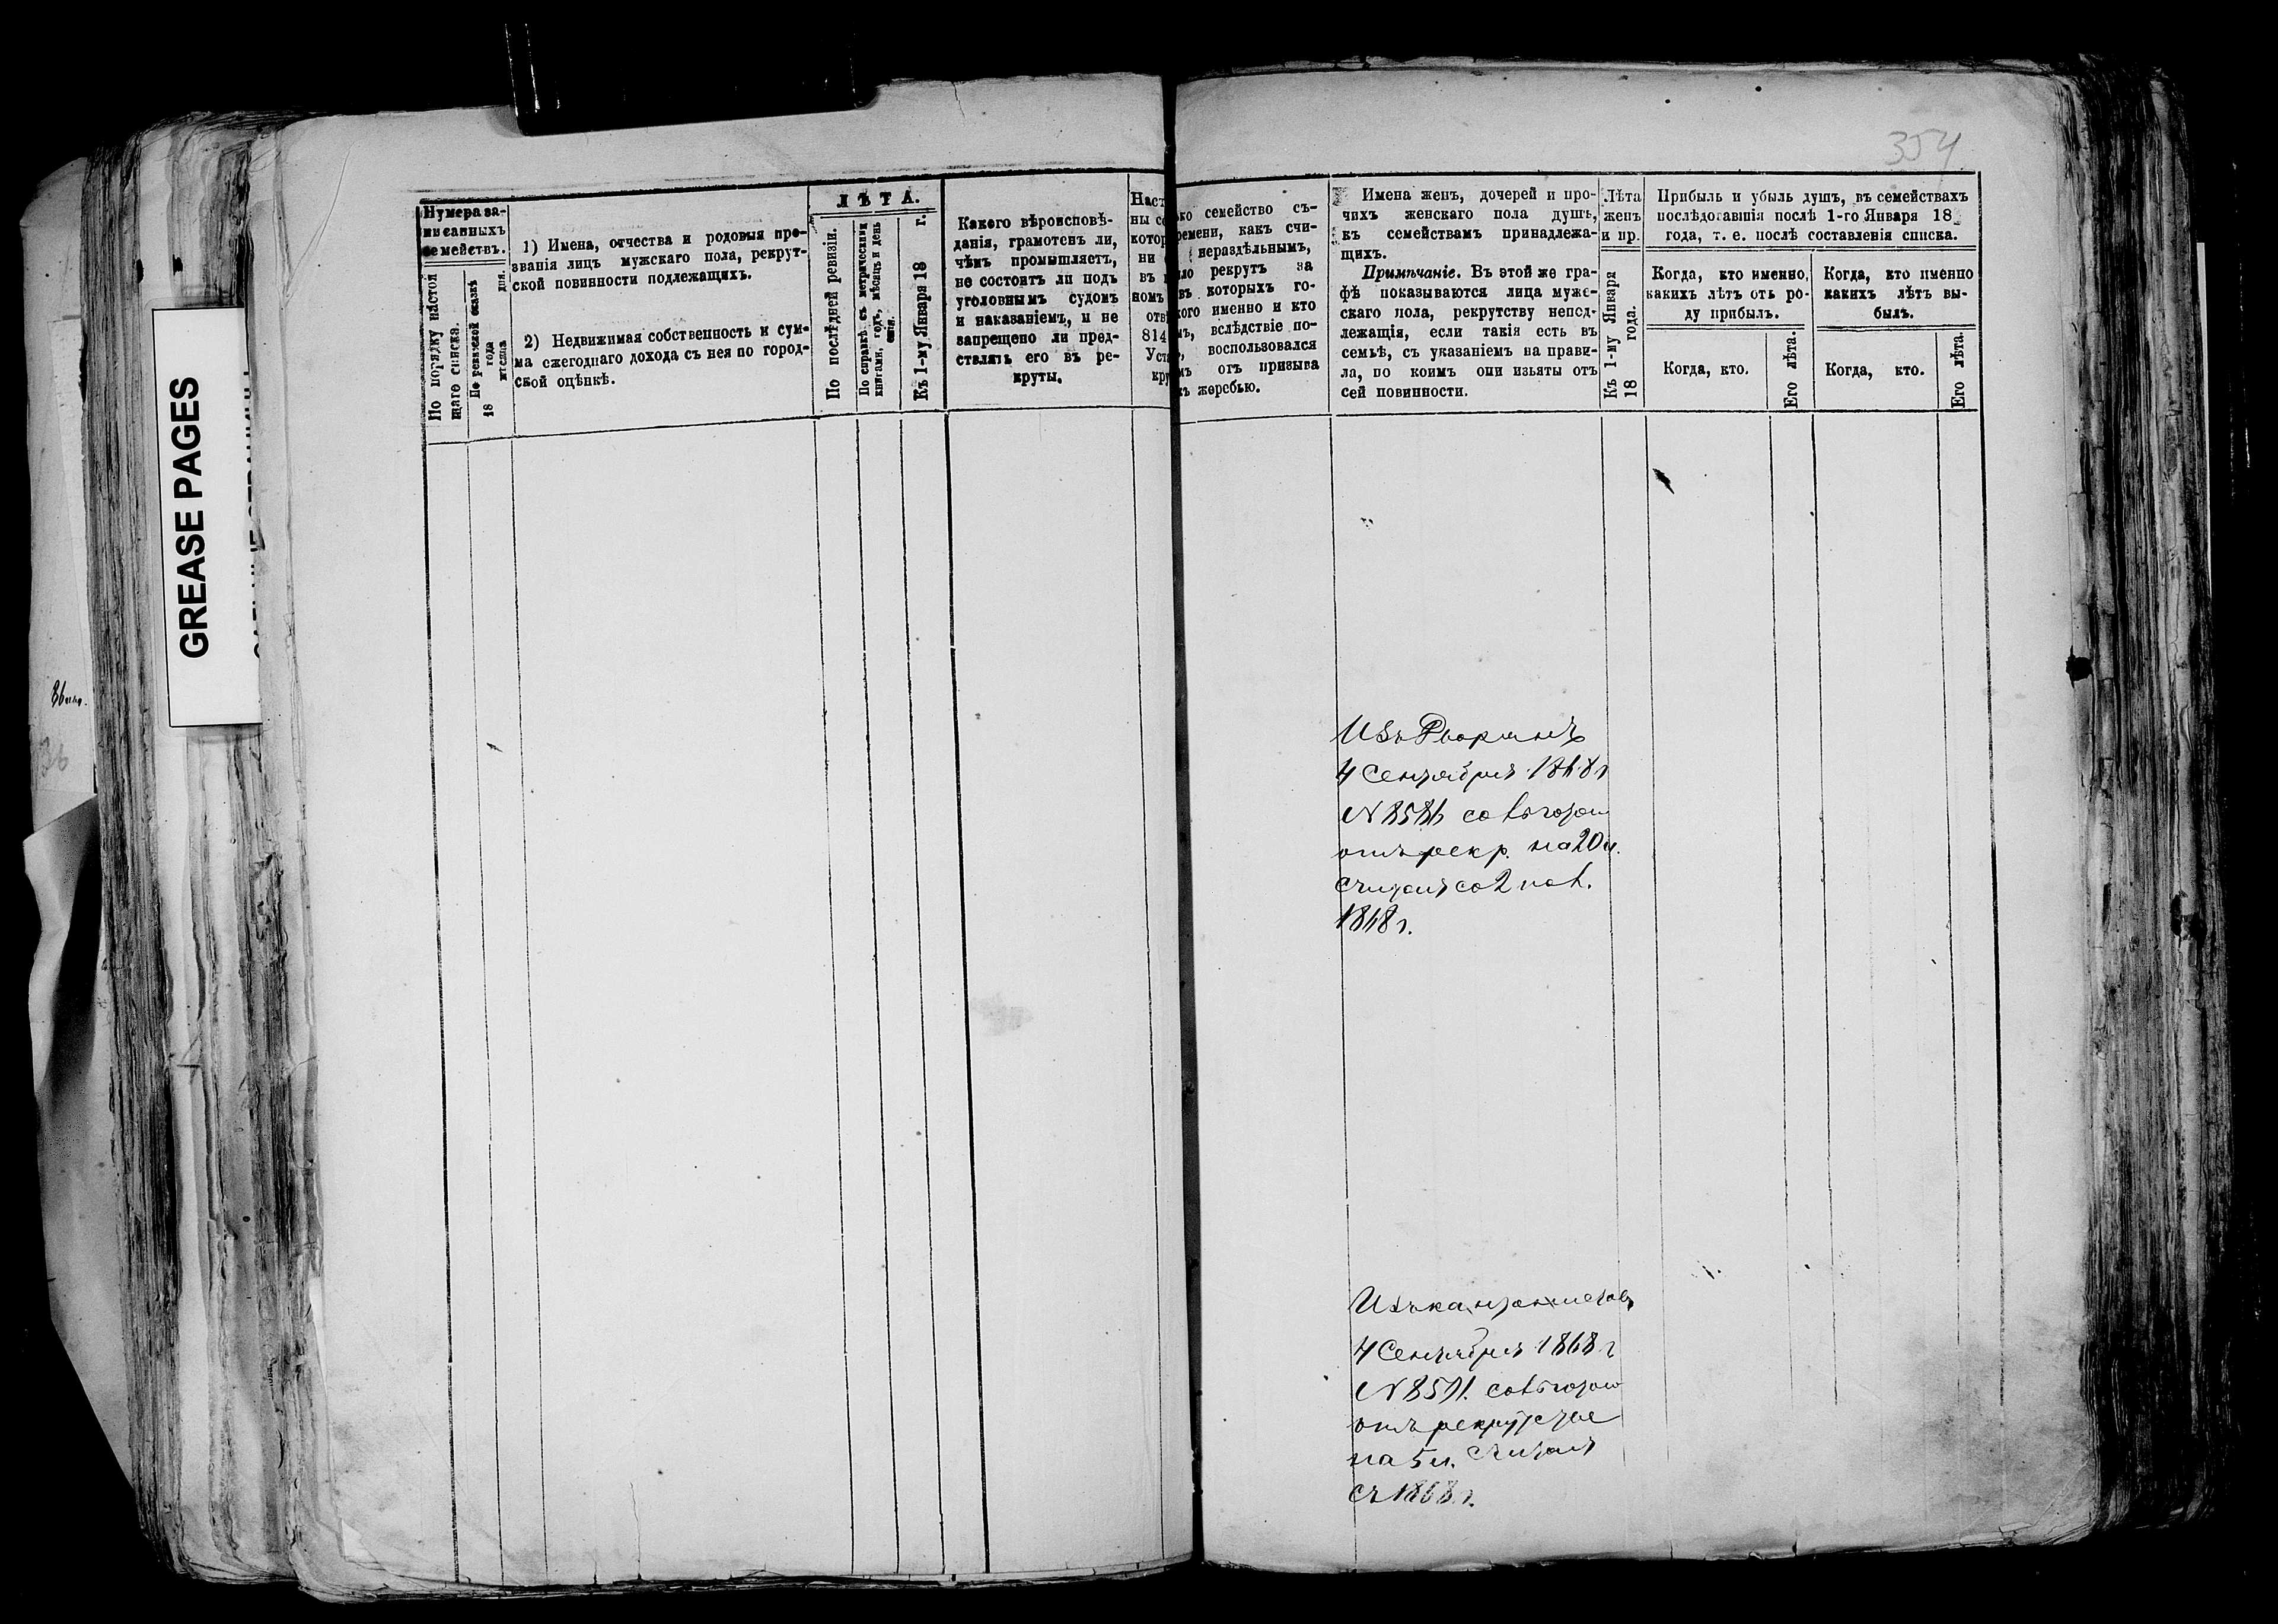 354
Нумера за-
писанныхъ
семействъ.
По порядку настоя
щаго списка.
По ревизской сказкѣ
18 года
мѣсяца дня.
1) Имена, отчества и родовыя про-
званія лицъ мужскаго пола, рекрут-
ской повинности подлежащихъ.
2) Недвижимая собственность и сум-
ма ежегоднаго дохода съ нея по город-
ской оцѣнкѣ.
ЛѢТА.
По послѣдней ревизіи.
По справкѣ съ метрическими
книгами, годъ, мѣсяцъ и день
Къ 1-му Января 18 г.
Какого вѣроисповѣ-
данія, грамотенъ ли,
чѣмъ промышляетъ,
не состоитъ ли подъ
уголовнымъ судомъ
и наказаніемъ, и не
запрещено ли пред-
ставлять его въ ре-
круты.
Наст
ны се
котор
ни
въ
номъ
отв
814
Уст
кру
ко семейство съ-
ремени, какъ счи-
нераздѣльнымъ,
ло рекрутъ за
въ которыхъ го-
кого именно и кто
мъ, вслѣдствіе по-
воспользовался
мъ отъ призыва
къ жеребью.
Имена женъ, дочерей и про-
чихъ женскаго пола душъ,
къ семействамъ принадлежа-
щихъ.
Примѣчаніе. Въ этой же гра-
фѣ показываются лица муже-
скаго пола, рекрутству непод-
лежащія, если такія есть въ
семьѣ, съ указаніемъ на прави-
ла, по коимъ они изъяты отъ
сей повинности.
Лѣта
женъ
и пр.
Къ 1-му Января
18 года.
Прибыль и убыль душъ, въ семействахъ
послѣдовавшія послѣ 1-го Января 18
года, т. е. послѣ составленія списка.
Когда, кто именно,
какихъ лѣтъ отъ ро-
ду прибылъ.
Когда, кто именно
какихъ лѣтъ вы-
былъ.
Когда, кто.
Его лѣта.
Когда, кто.
Его лѣта.
GREASE PAGES
Изъ Дворянъ
4 Сентября 1868 г
N 8586 со льготою
отъ рекр. на 20 л.
считая со 2 нов.
1868 г.
Изъ кантонистовъ
4 Сентября 1868 г
N 8591. со льготою
отъ рекрутства
на 5 л. считая
съ 1868 г.